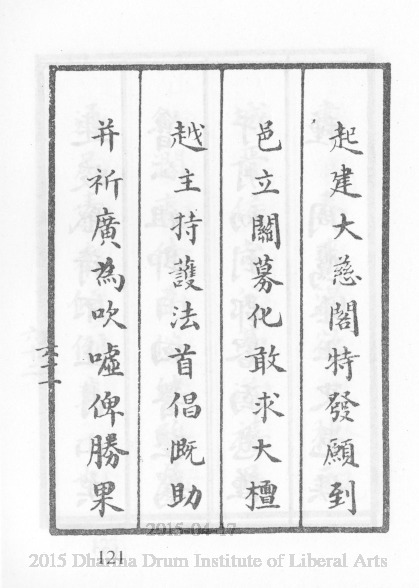 起建大慈閣特發願到
邑立關募化敢求大檀
越主持護法首倡慨助
并祈廣為吹噓俾勝果
六二
121
2015-04-17
2015 Dharma Drum Institute of Liberal Arts